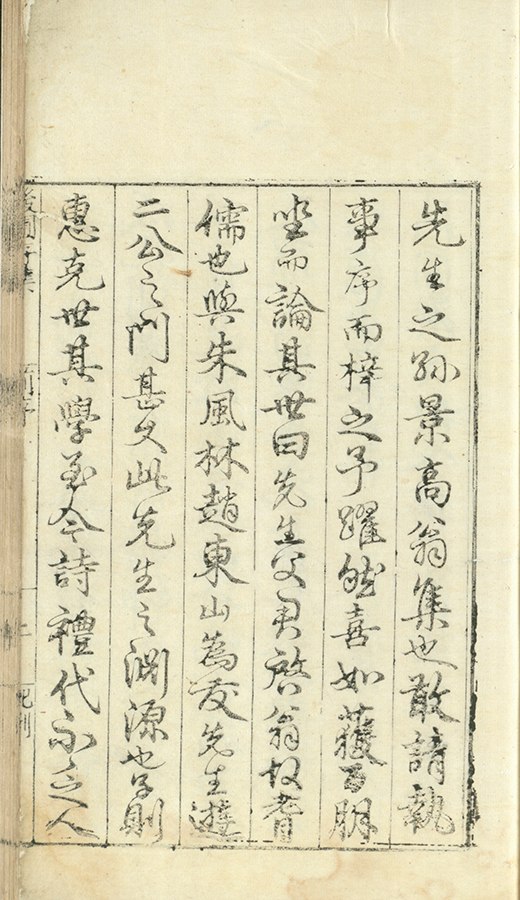 先生之孫景高翁集也敢請執
事序而梓之予躍然喜如獲百朋
坐而論其世曰先生父君啓翁故耆
儒也與朱風林趙東山為友先生遊
二公之門甚久此先生之淵源也子則
惠克世其學至今詩禮代不乏人